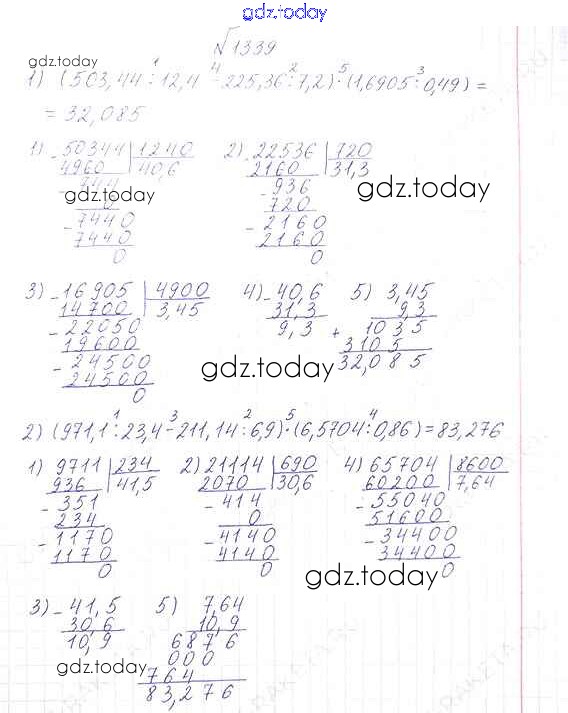 gdz.today
√1339
gdz.today
1) (503,44 : 12,4 - 225,36 : 7,2) · (1,6905 : 0,49) =
1 4 2 5 3
= 32,085
1) - 50344 | 1240 2) - 22536 | 720
4960 40,6 2160 31,3
- 744 - 936
gdz.today gdz.today
0 720
- 7440 - 2160
7440 2160
0 0
3) - 16905 | 4900 4) - 40,6 5) 3,45
14700 3,45 31,3 9,3
- 22050 9,3 + 1035
19600 3105
- 24500 gdz.today 32,085
24500
0
2) (971,1 : 23,4 - 211,14 : 6,9) · (6,5704 : 0,86) = 83,276
1 3 2 5 4
1) 9711 | 234 2) 21114 | 690 4) 65704 | 8600
936 41,5 2070 30,6 60200 7,64
- 351 - 414 - 55040
234 0 51600
- 1170 - 4140 - 34400
1170 4140 34400
0 0 0
gdz.today
3) - 41,5 5) 7,64
30,6 10,9
10,9 6876
gdz.today 000
764
83,276